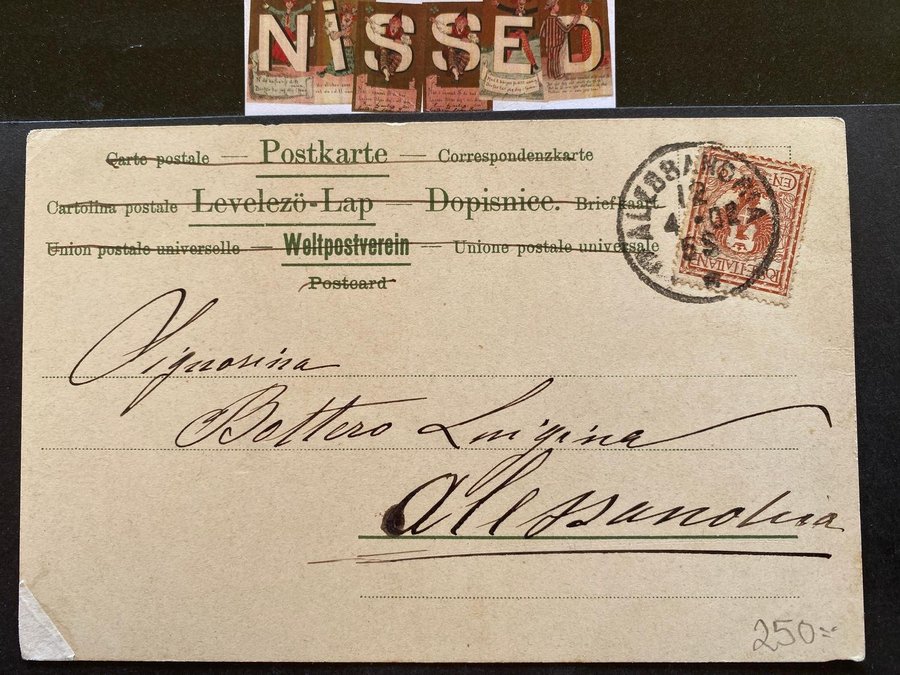 NiSSED
Carte postale — Postkarte — Correspondenzkarte
Cartolina postale Levelezö-Lap — Dopisnice. Briefkaart
Union postale universelle — Weltpostverein — Unione postale universale
Postcard
12
4 - 02
POSTE ITALIANE
Signorina
Bottero Luigina
Alessandria
250=